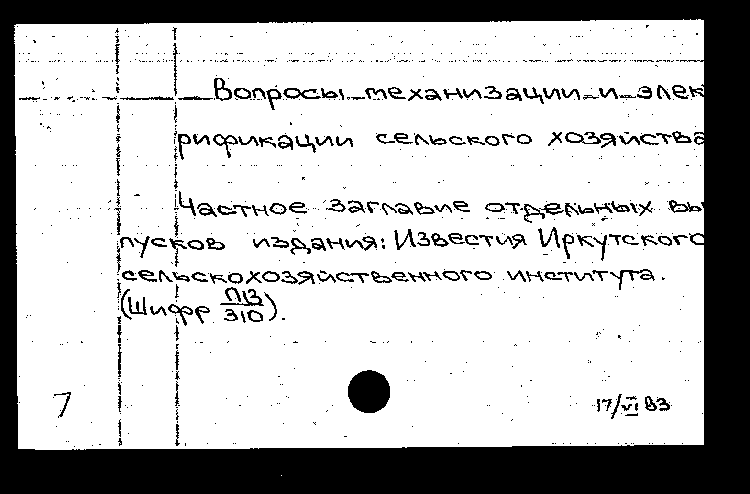 Вопросы механизации и элек
рификации сельского хозяйства
Частное заглавие отдельных вы
пусков издания: Известия Иркутского
сельскохозяйственного института.
(Шифр П13/310).
7
17/VI 83